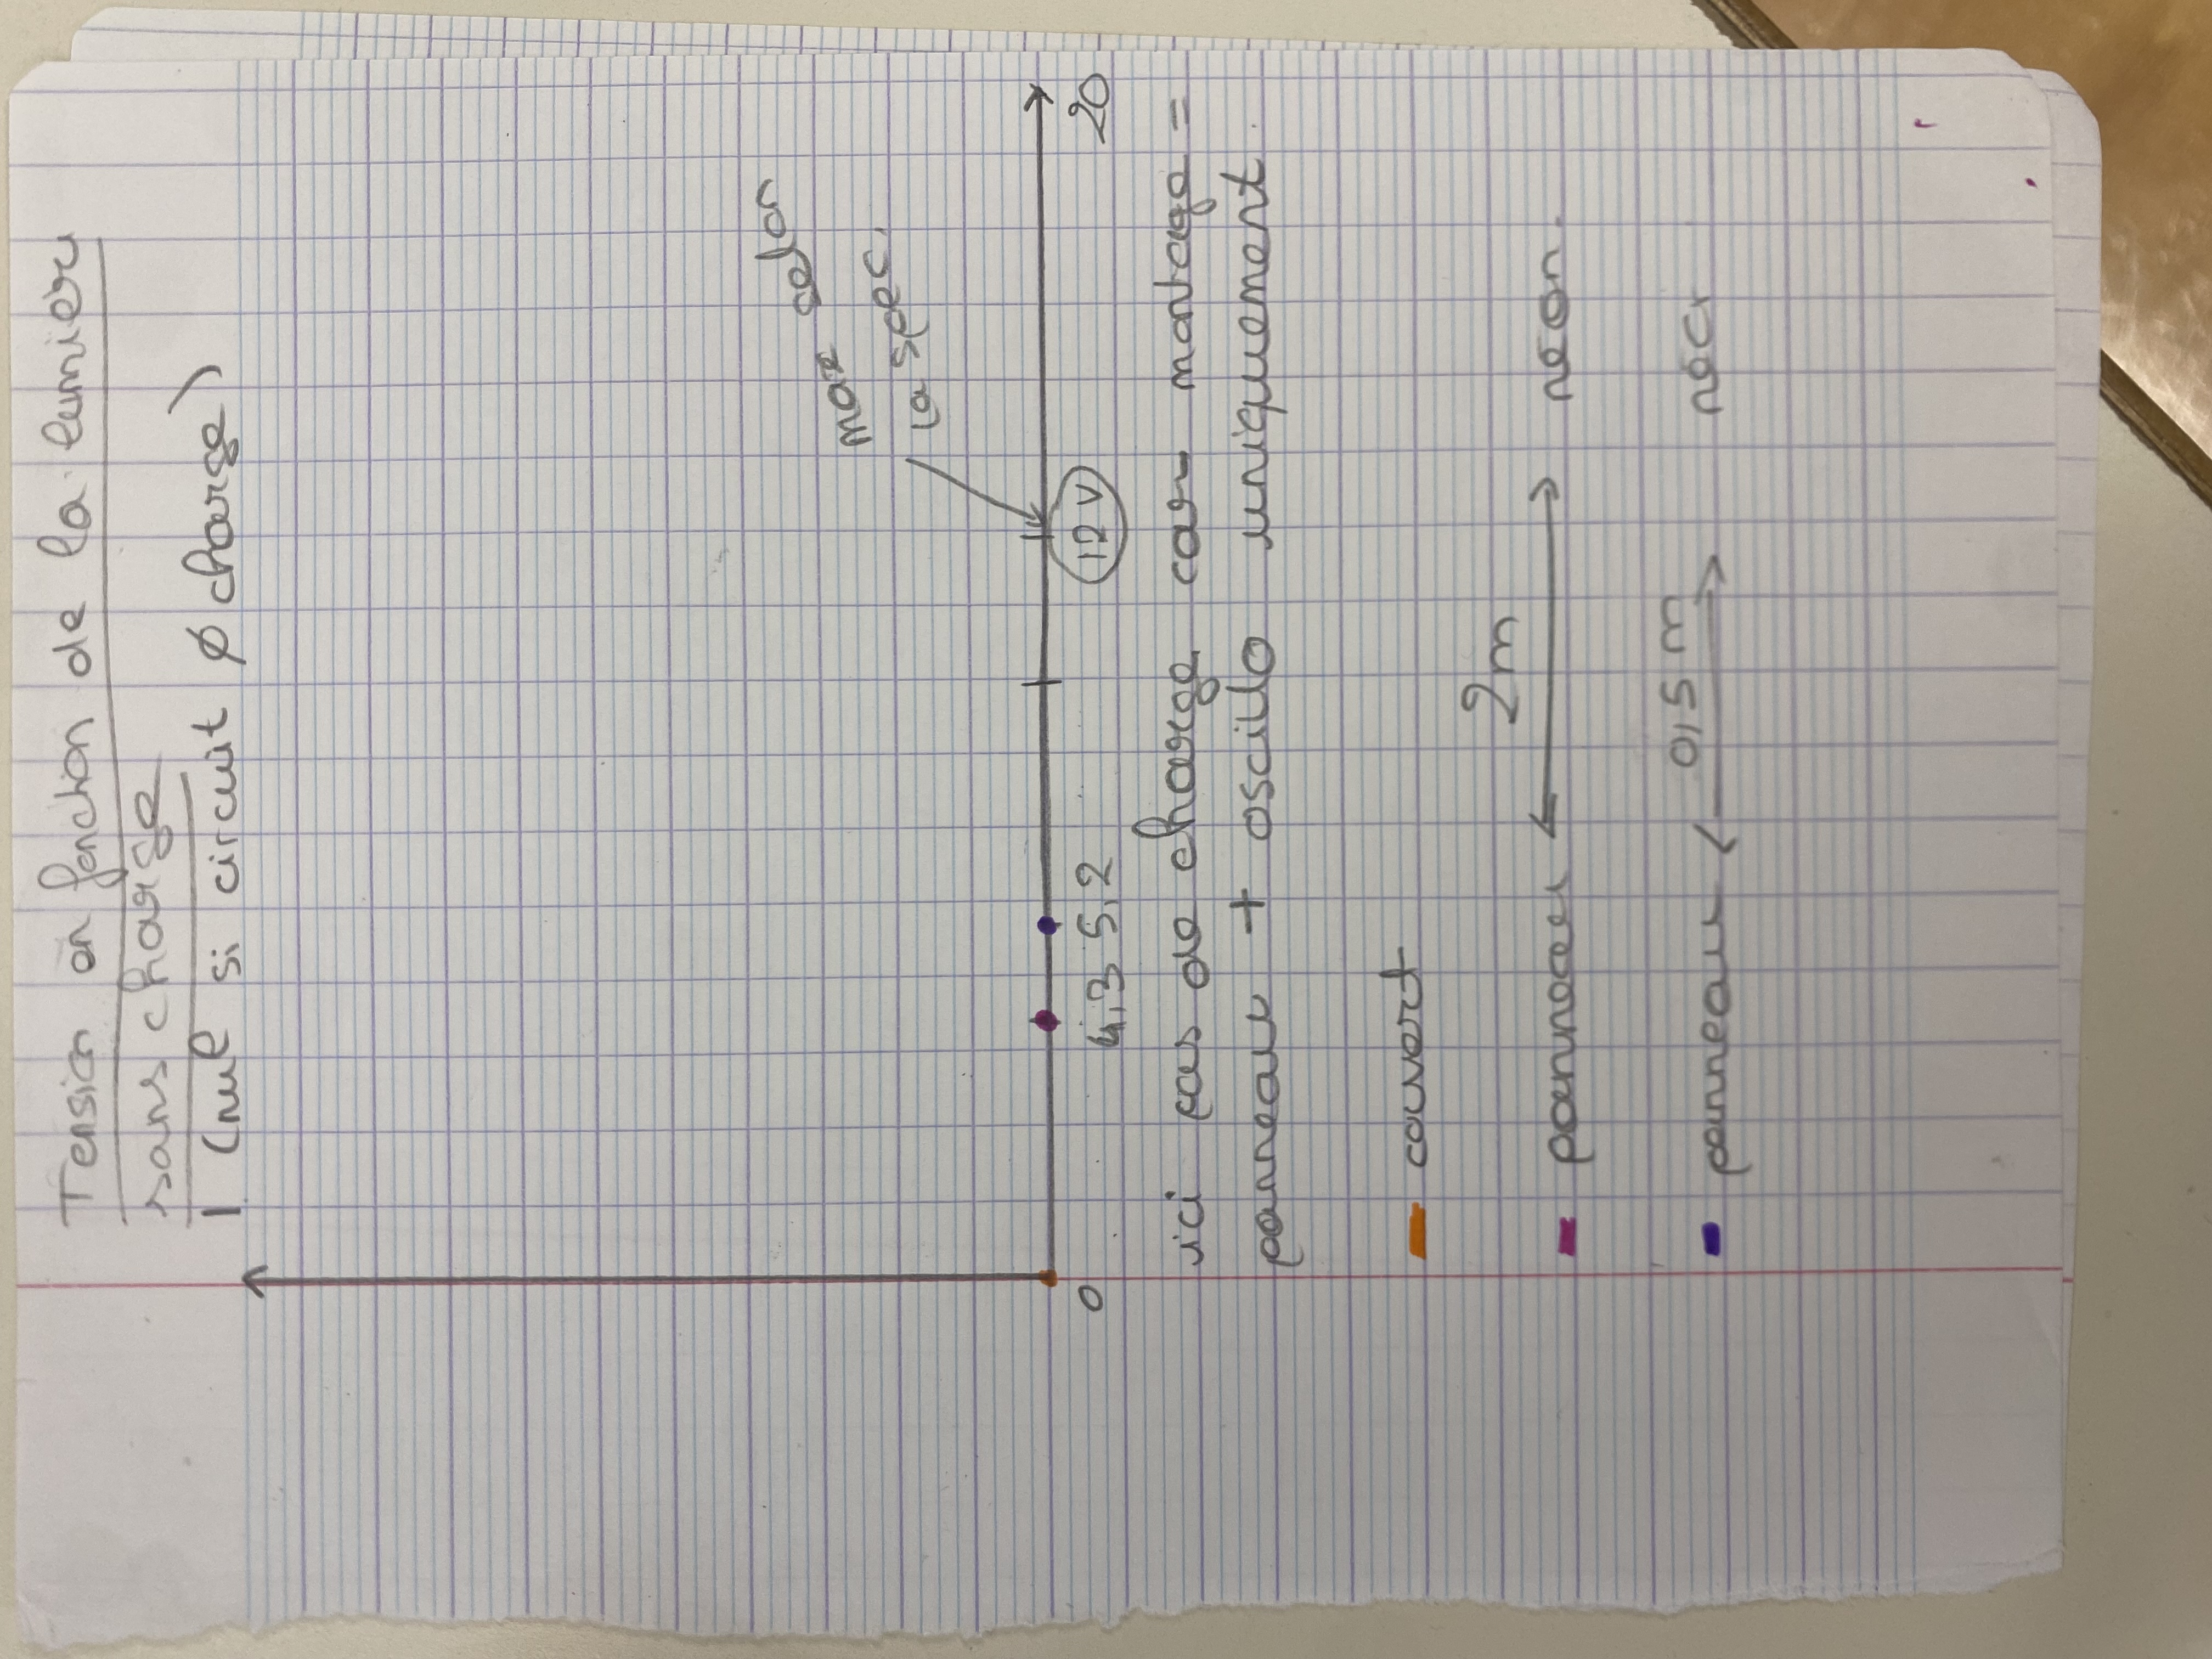 Tension en fonction de la lumière
sans charge
I (nul si circuit ∅ charge)
max selon
la spec.
0 4,3 5,2 12 V 20
ici pas de charge car montage =
panneau + oscillo uniquement.
couvert
2m
panneau ↔ néon.
0,5 m
panneau ↔ néon